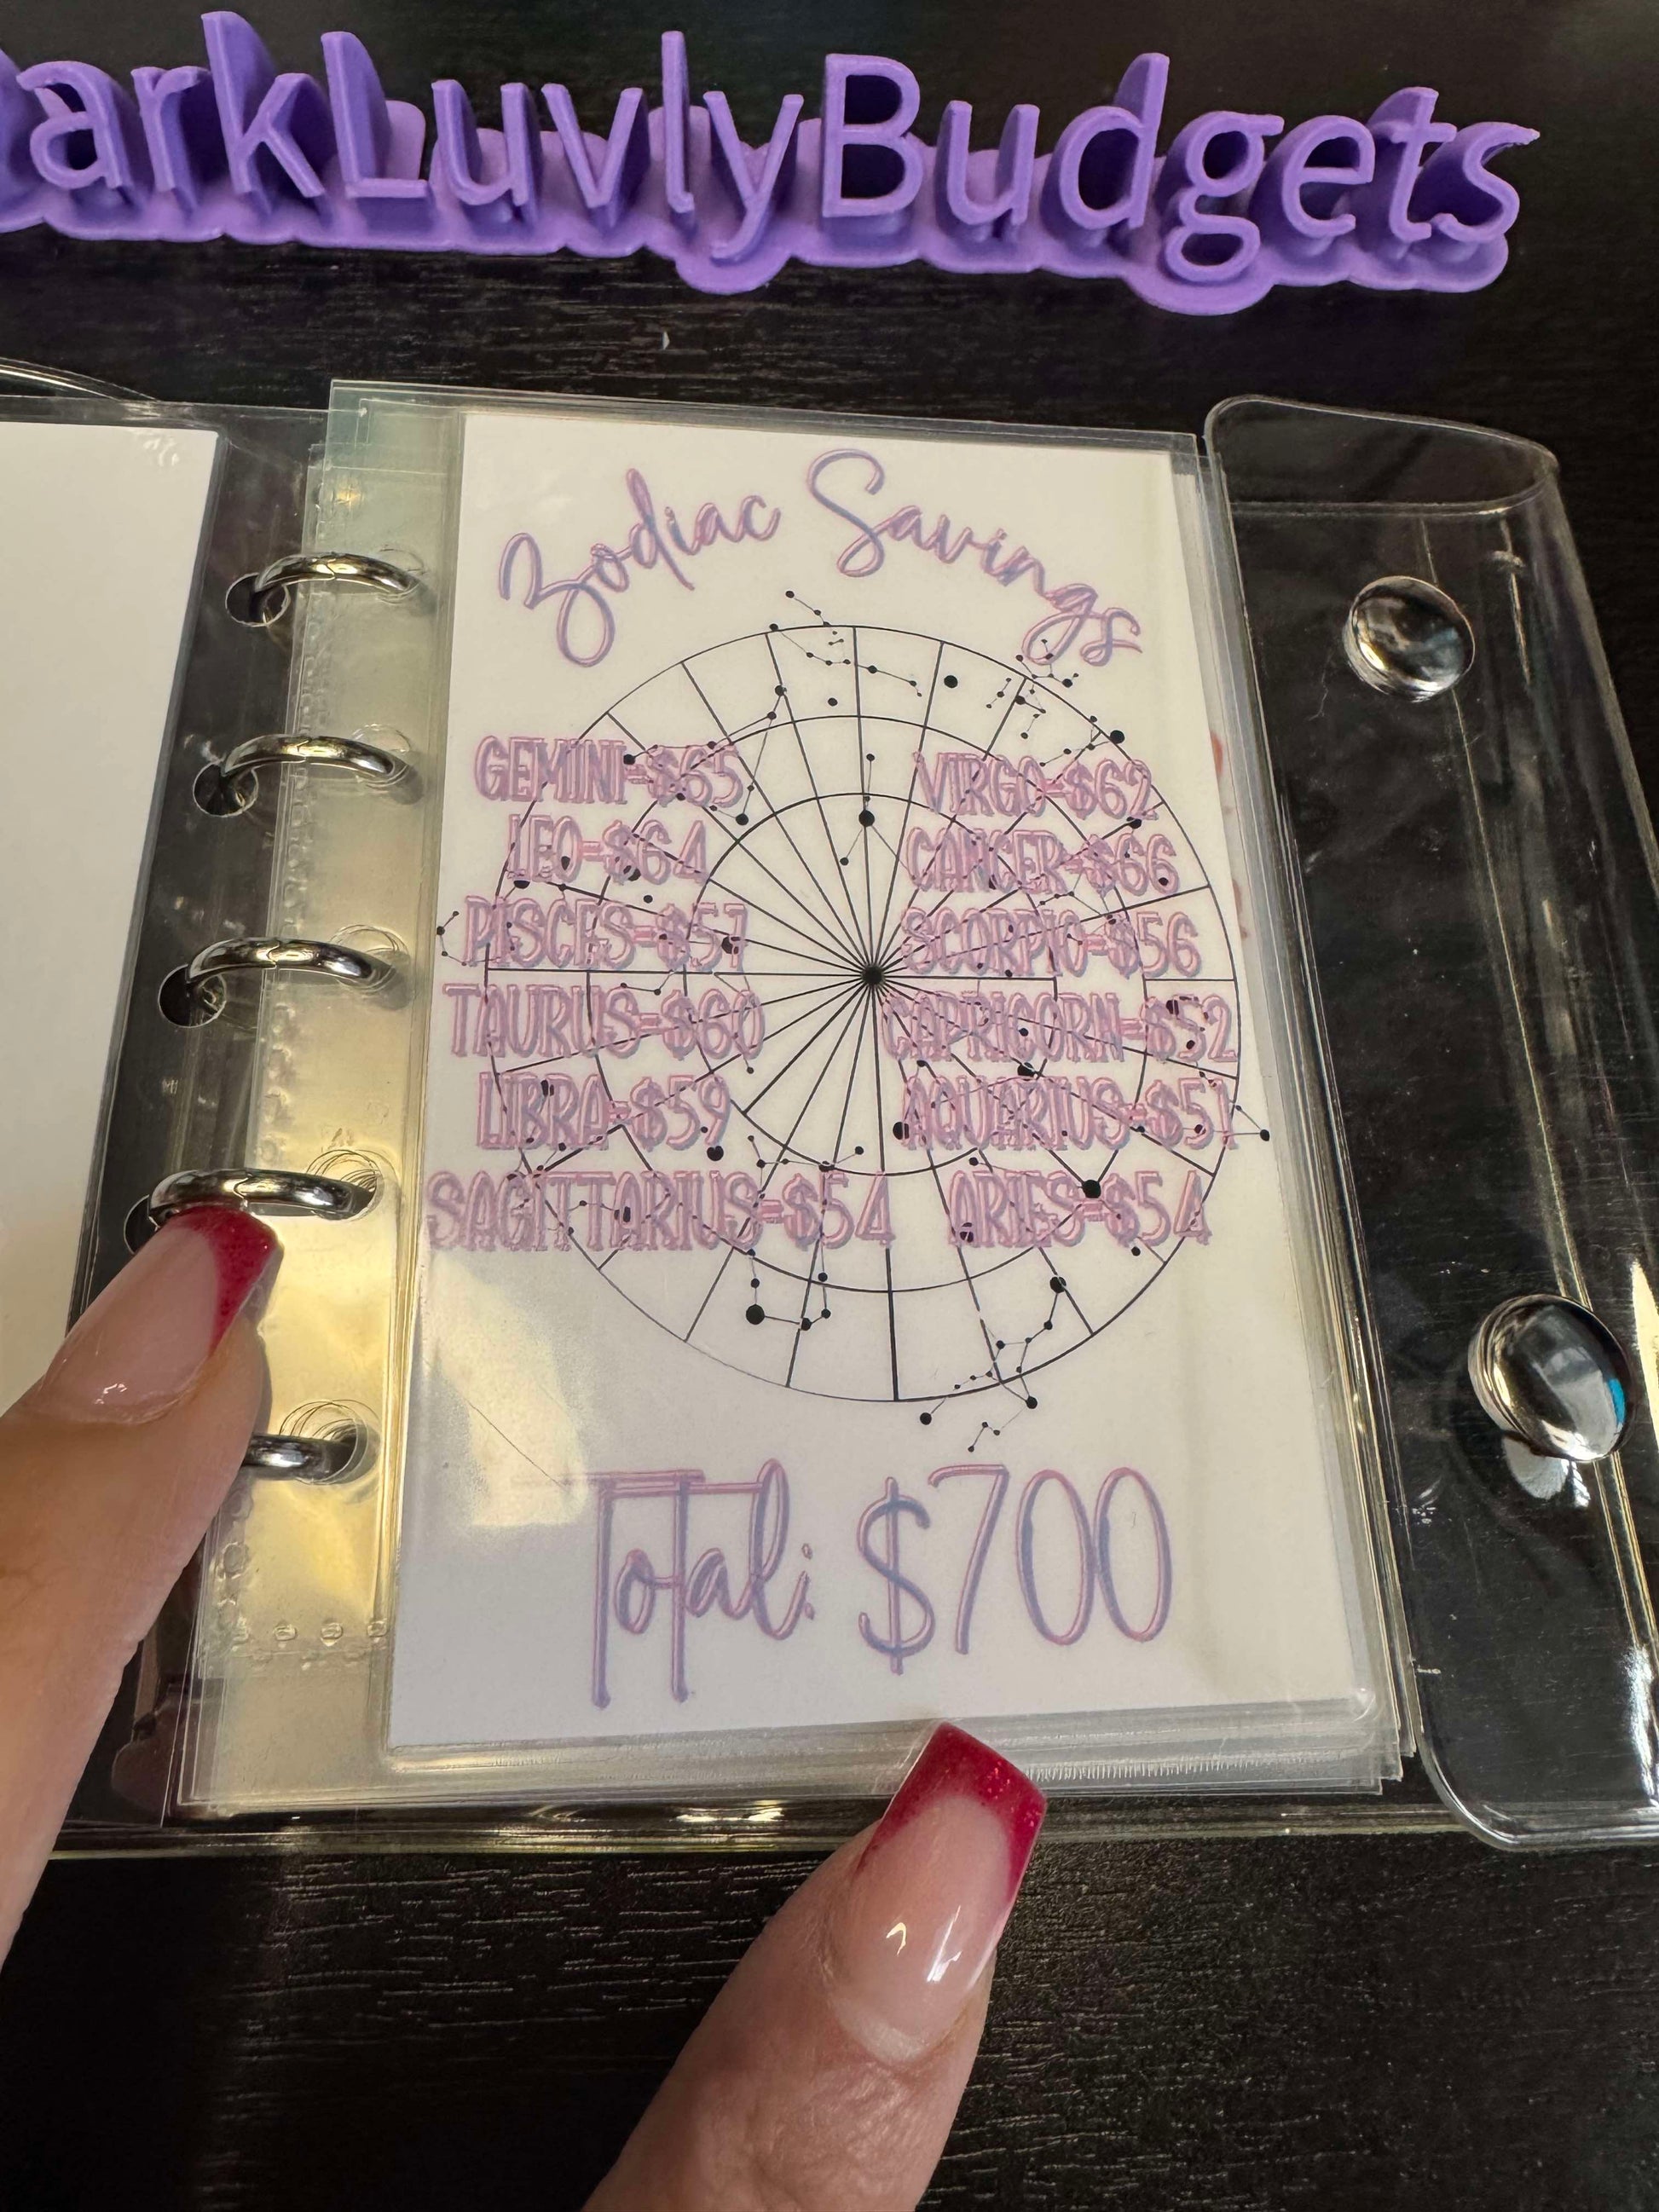 arkLuvlyBudgets
Zodiac Savings
GEMINI-$65
LEO-$64
PISCES-$57
TAURUS-$60
LIBRA-$59
SAGITTARIUS-$54
VIRGO-$62
CANCER-$66
SCORPIO-$56
CAPRICORN-$52
AQUARIUS-$51
ARIES-$54
Total: $700